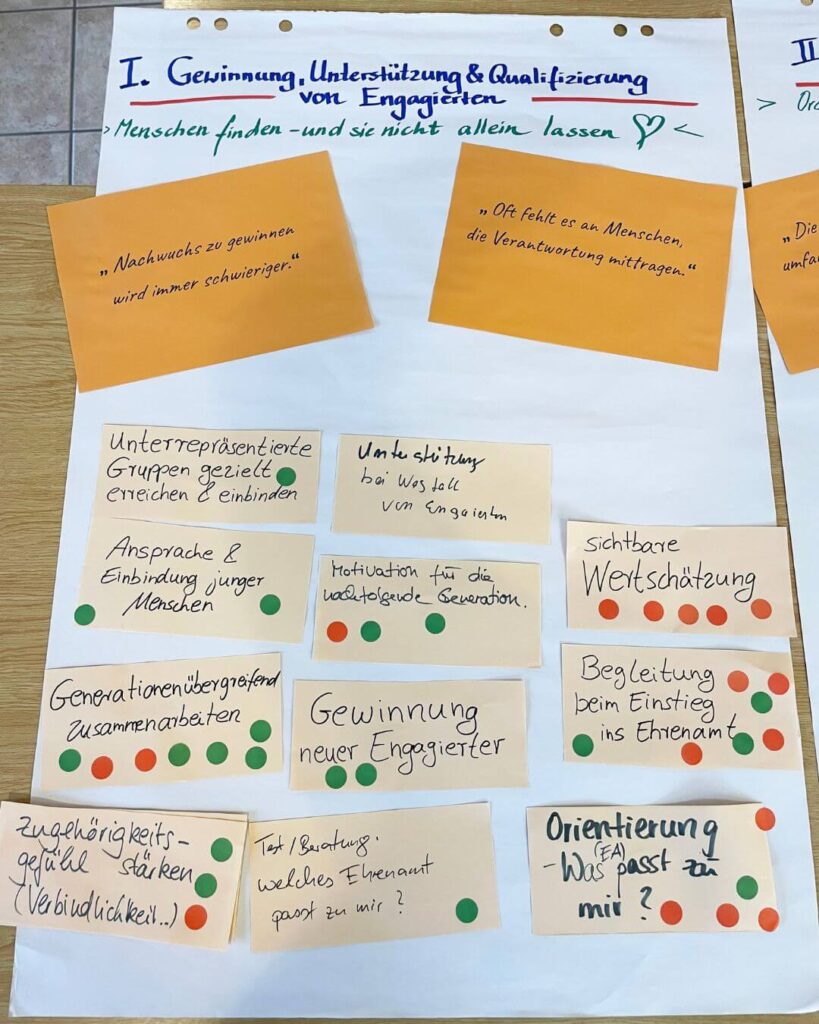 I. Gewinnung, Unterstützung & Qualifizierung
von Engagierten
> Menschen finden - und sie nicht allein lassen <
„Nachwuchs zu gewinnen
wird immer schwieriger.“
„Oft fehlt es an Menschen,
die Verantwortung mittragen.“
Unterrepräsentierte
Gruppen gezielt
erreichen & einbinden
Unterstützung
bei Wegfall
von Engaierten
Ansprache &
Einbindung junger
Menschen
Motivation für die
nachfolgende Generation.
Sichtbare
Wertschätzung
Generationenübergreifend
zusammenarbeiten
Gewinnung
neuer Engagierter
Begleitung
beim Einstieg
ins Ehrenamt
Zugehörigkeits-
gefühl stärken
(Verbindlichkeit..)
Test/Beratung.
welches Ehrenamt
passt zu mir?
Orientierung
(EA)
- Was passt zu
mir?
II
>
„Die